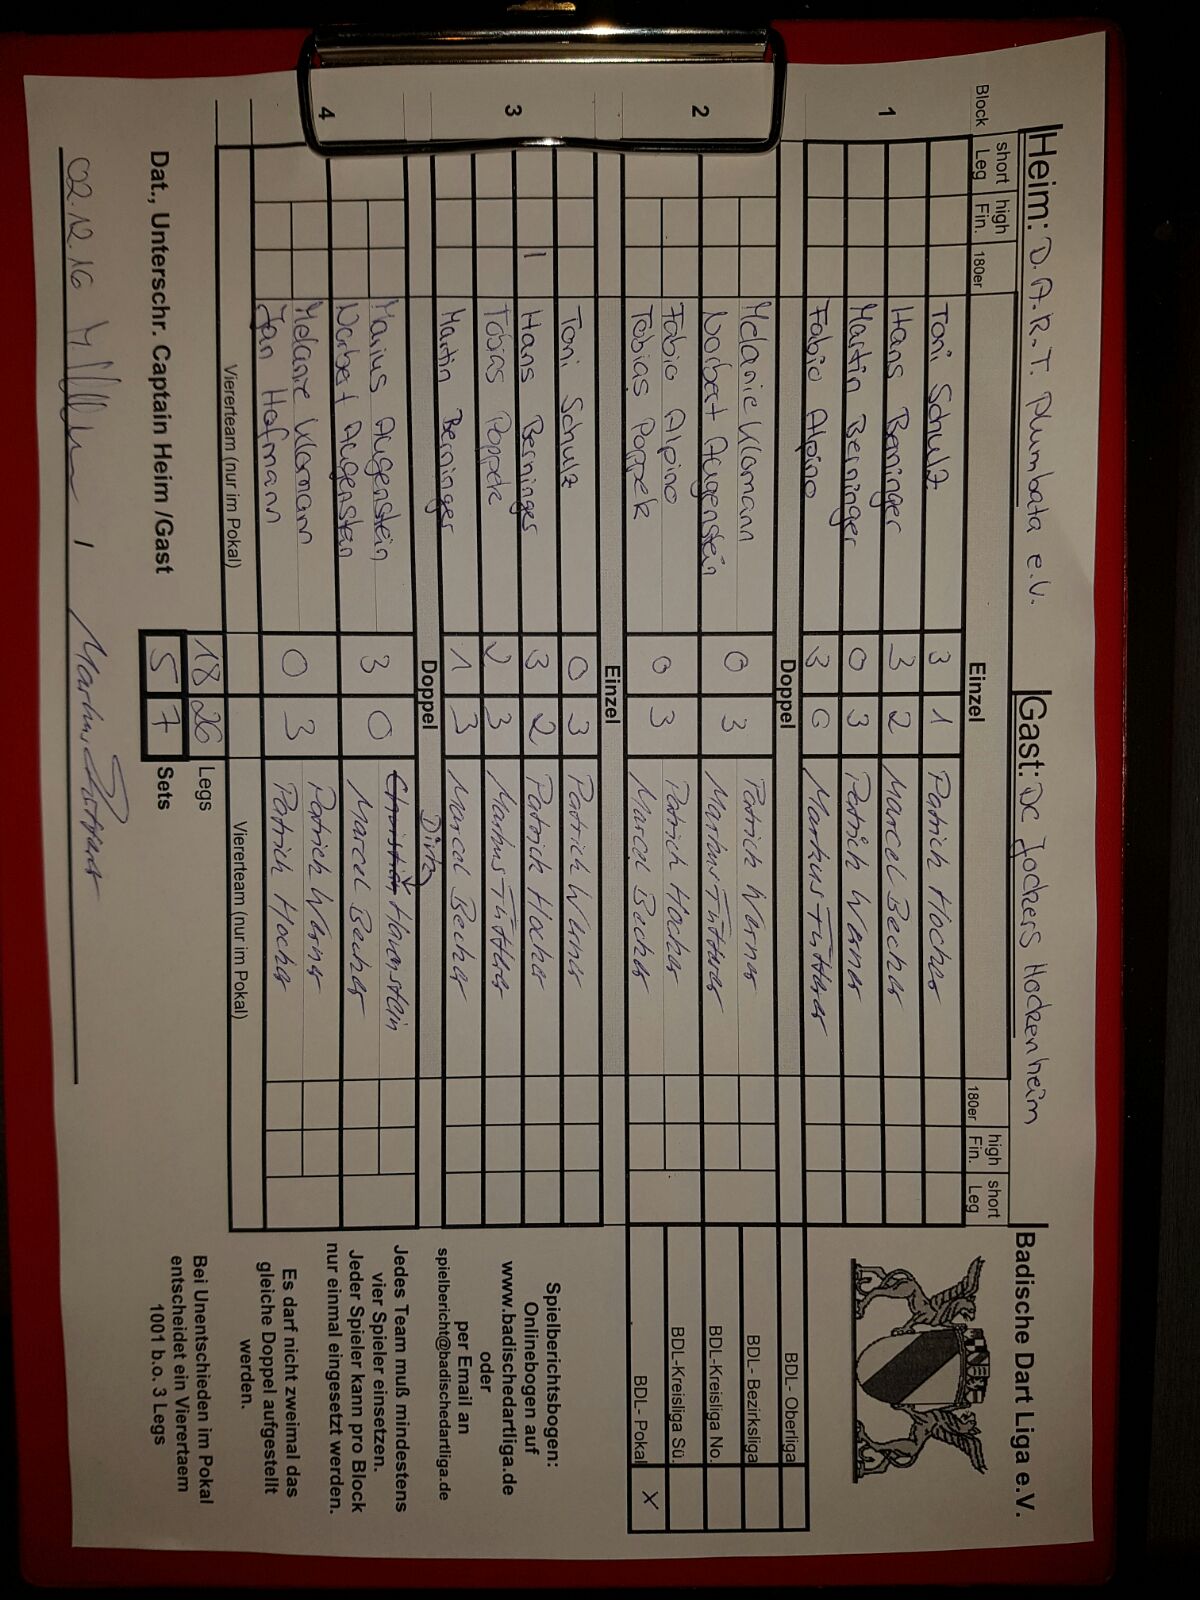 Heim: D.A.R.T. Plumbata e.V. Gast: DC Jockers Hockenheim Badische Dart Liga e.V.
Block short Leg high Fin. 180er Einzel 180er high Fin. short Leg
1
Toni Schulz 3 1 Patrick Hocher
Hans Berninger 3 2 Marcel Becher
Martin Berninger 0 3 Patrick Werner
Fabio Alpino 3 0 Markus Fütterer
Doppel
BDL- Oberliga
2
Melanie Klomann 0 3 Patrick Werner
BDL- Bezirksliga
Norbert Augenstein Markus Fütterer
BDL-Kreisliga No.
Fabio Alpino 0 3 Patrick Hocher
BDL-Kreisliga Sü.
Tobias Poppek Marcel Becher
BDL- Pokal X
Einzel
3
Toni Schulz 0 3 Patrick Werner
1 Hans Berninger 3 2 Patrick Hocher
Tobias Poppek 2 3 Markus Fütterer
Martin Berninger 1 3 Marcel Becher
Doppel
Dirk
4
Marius Augenstein 3 0 Havenstein
Norbert Augenstein Marcel Becher
Melanie Klomann 0 3 Patrick Werner
Jan Hofmann Patrick Hocher
Viererteam (nur im Pokal) Viererteam (nur im Pokal)
18 26 Legs
5 7 Sets
Dat., Unterschr. Captain Heim /Gast
02.12.16 /
Spielberichtsbogen:
Onlinebogen auf
www.badischedartliga.de
oder
per Email an
spielbericht@badischedartliga.de
Jedes Team muß mindestens
vier Spieler einsetzen.
Jeder Spieler kann pro Block
nur einmal eingesetzt werden.
Es darf nicht zweimal das
gleiche Doppel aufgestellt
werden.
Bei Unentschieden im Pokal
entscheidet ein Vierertaem
1001 b.o. 3 Legs